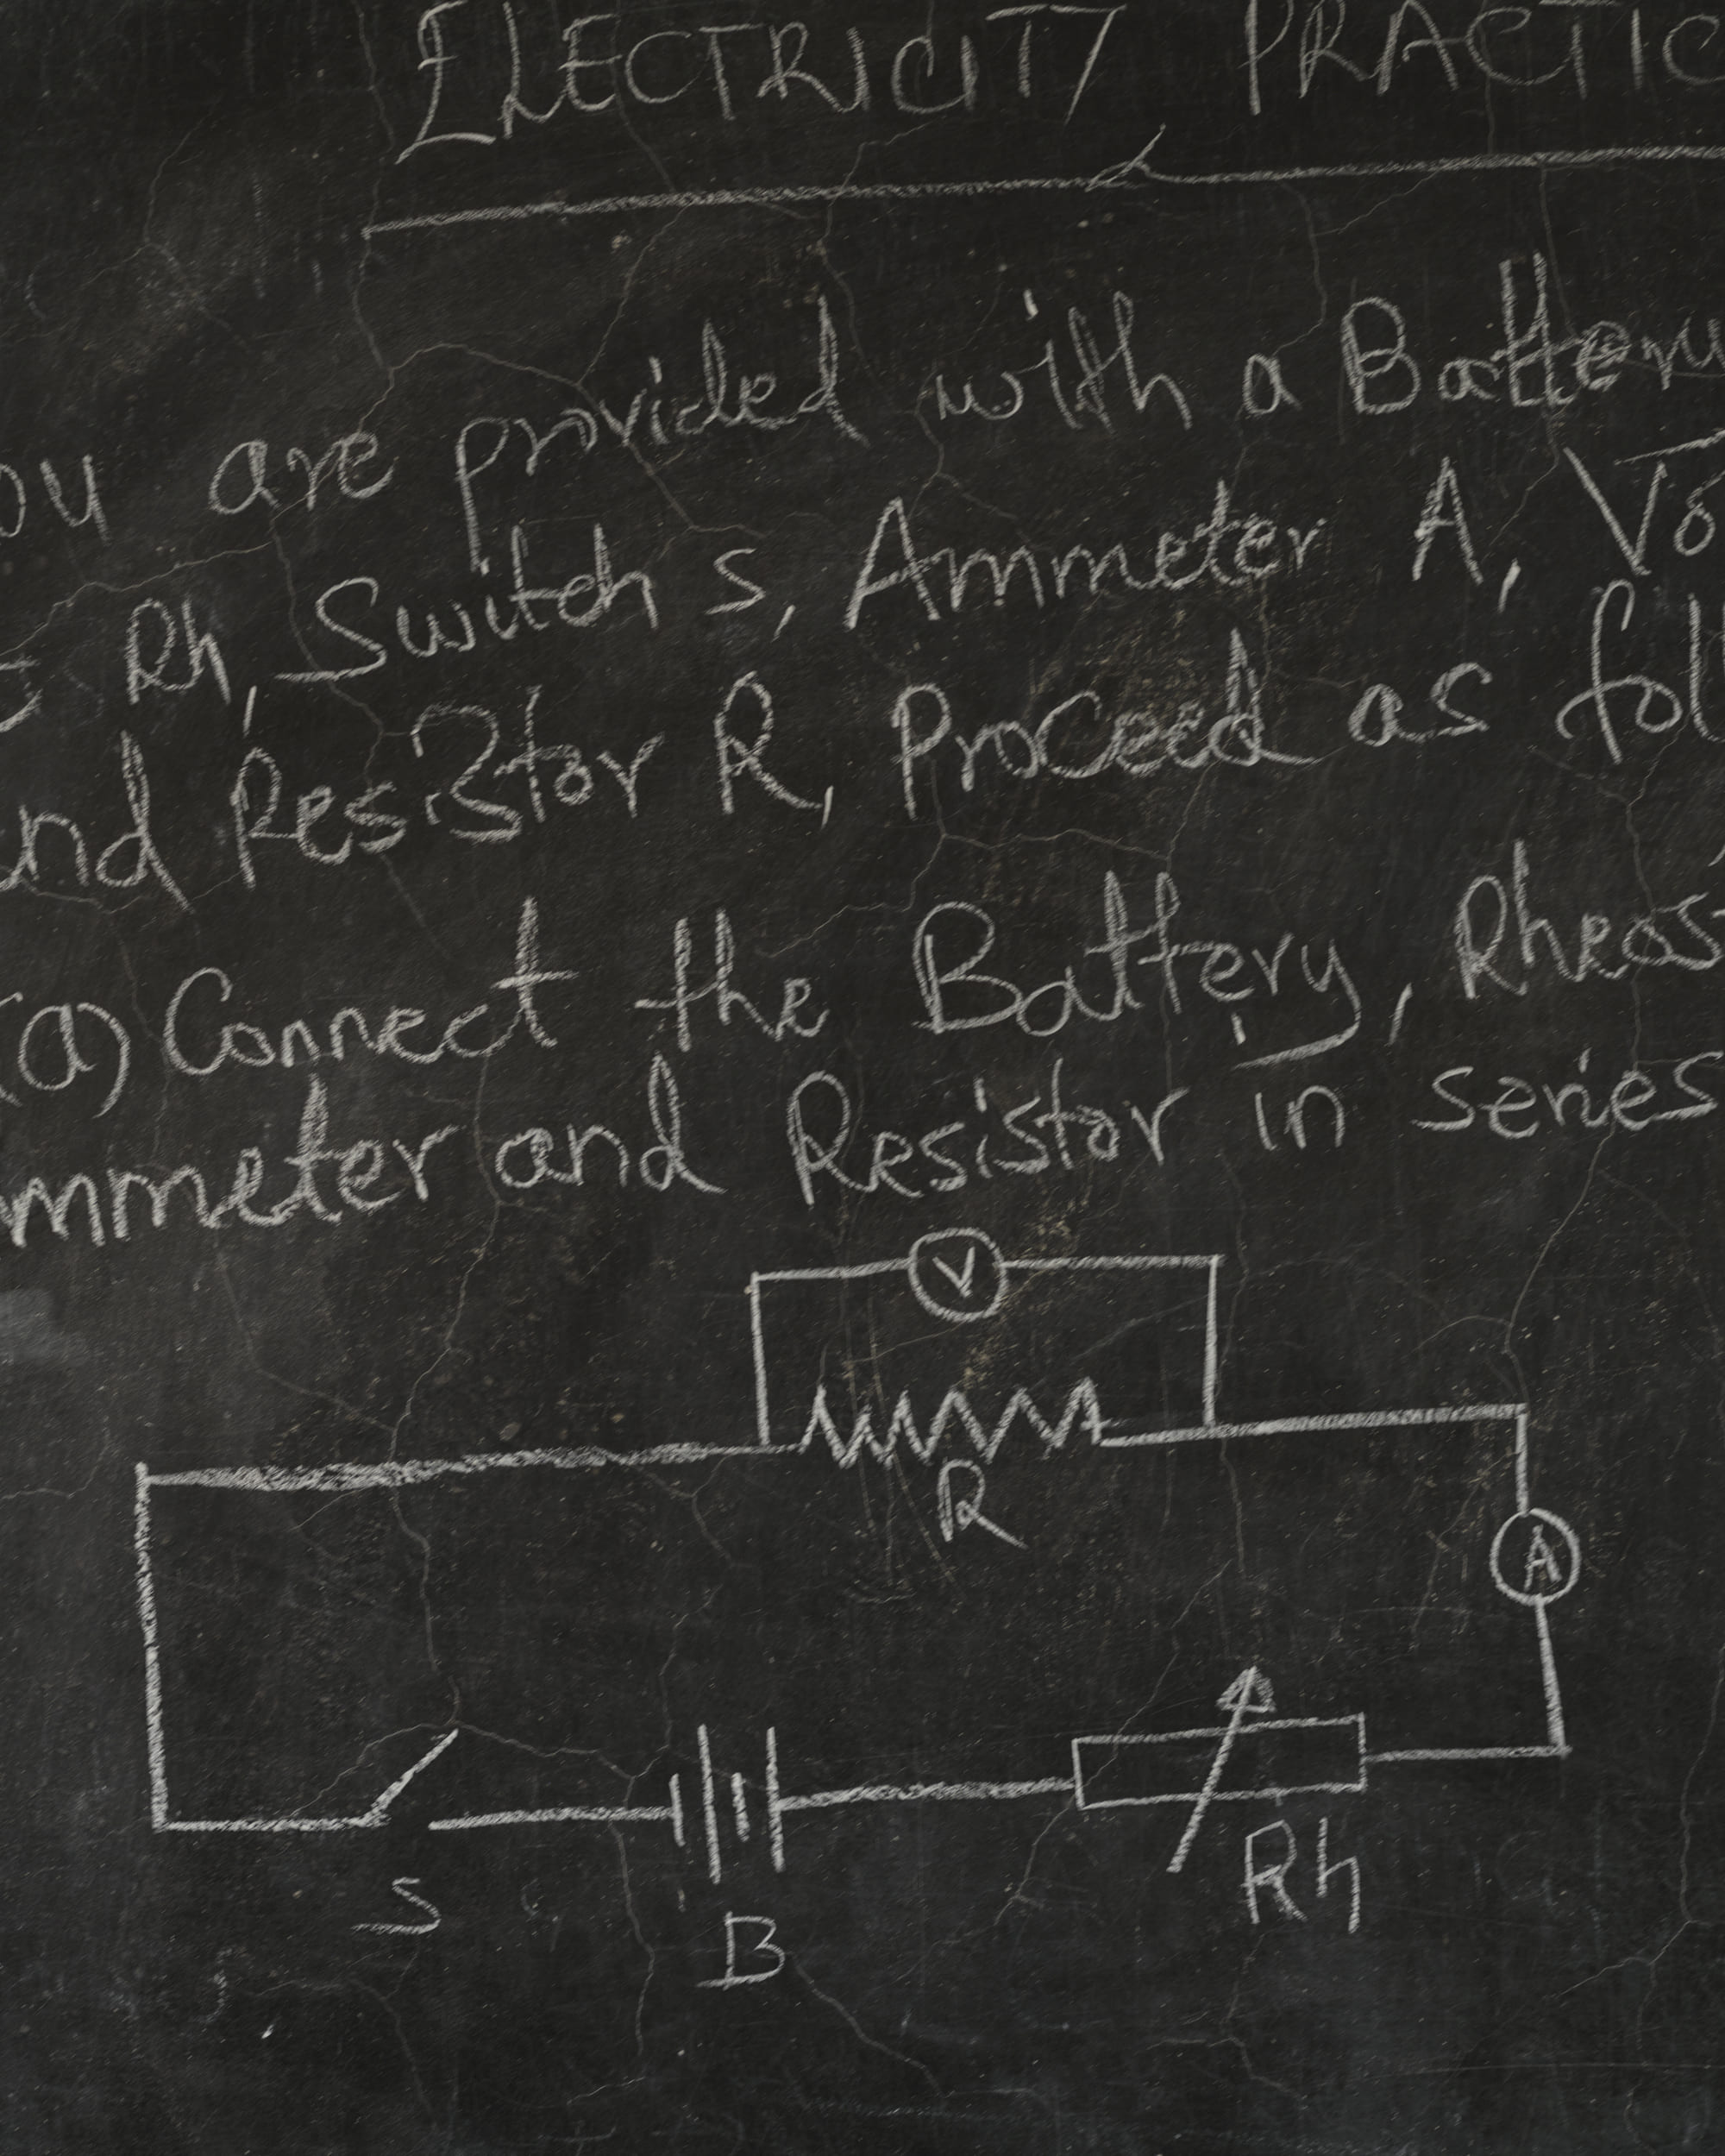 ELECTRICITY PRACTIC
ou are provided with a Battery
Rh, Switch S, Ammeter A, Vo
nd Resistor R, Proceed as fol
(a) Connect the Battery, Rheos
mmeter and Resistor in series
V
R
A
Rh
S
B